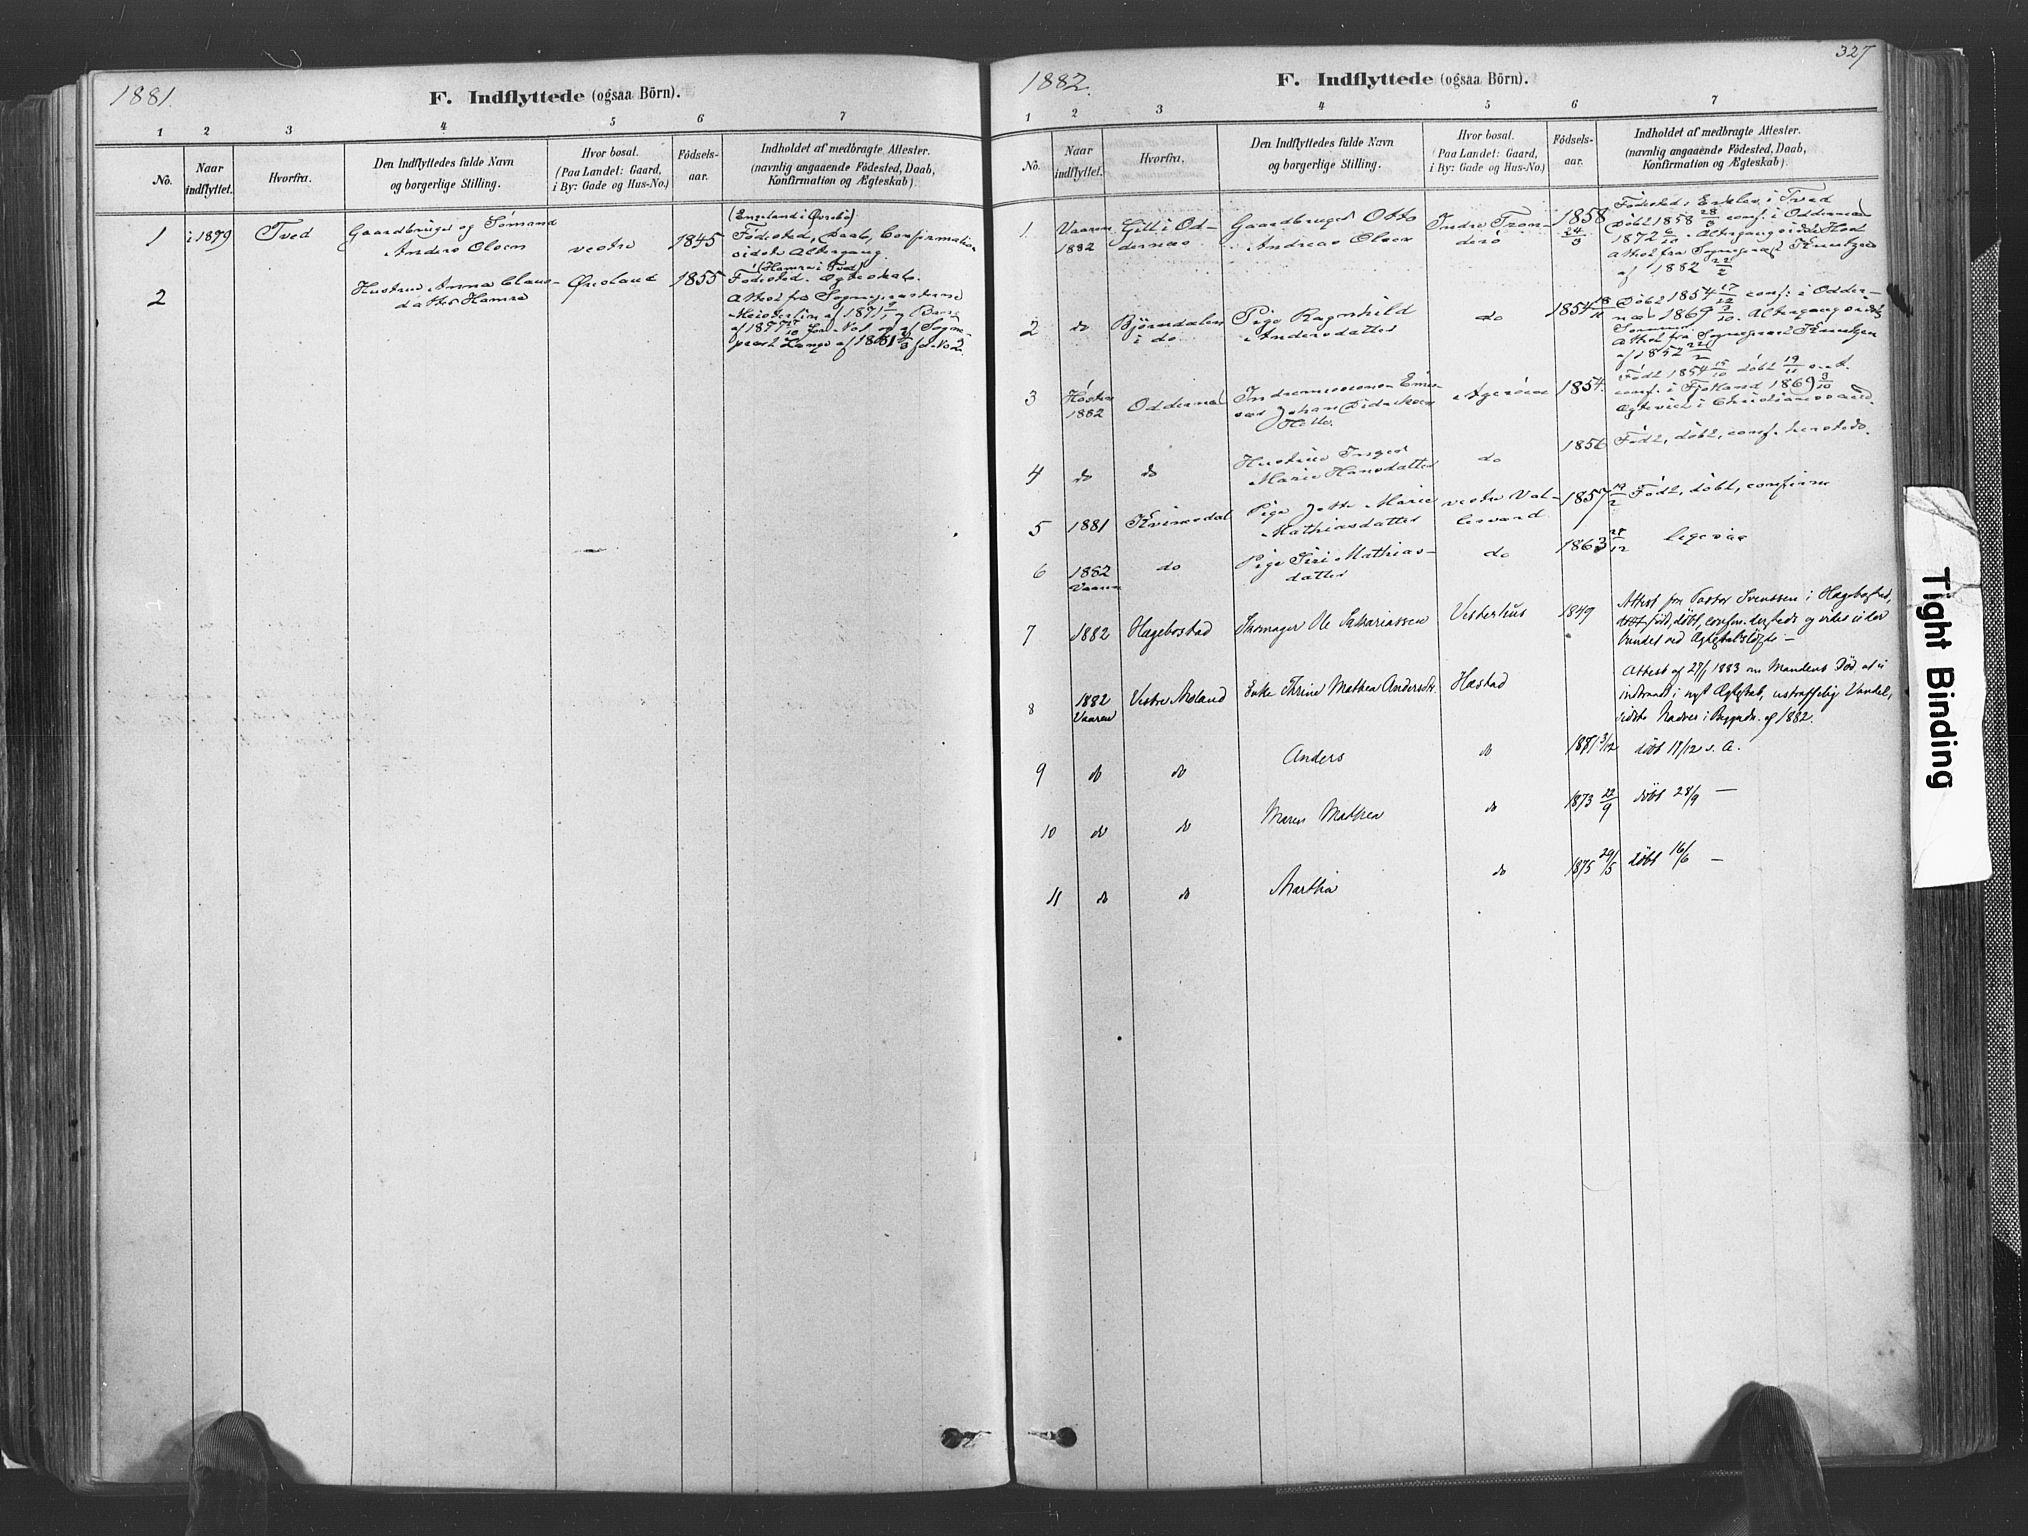 1881.
F. Indflyttede (ogsaa Börn).
1 2 3 4 5 6 7
No. Naar indflyttet. Hvorfra. Den Indflyttedes fulde Navn og borgerlige Stilling. Hvor bosat. (Paa Landet: Gaard, i By: Gade og Hus-No.) Födsels-aar. Indholdet af medbragte Attester. (navnlig angaaende Födested, Daab, Konfirmation og Ægteskab)
1 i 1879 Tved Gaardbruger og Sömand
Anders Olsen vestre 1845
(Eigeland i Øvrebö)
Födested, Daab, Confirmation
sidste Altergang.
2 Hustru Anna Claus-
datter Hamre Øresland 1855
(Hamre i Tved)
Födested. Ægteskab.
Attest fra Sognepresterne
1882.
F. Indflyttede (ogsaa Börn).
327
1 2 3 4 5 6 7
No. Naar indflyttet. Hvorfra. Den Indflyttedes fulde Navn og borgerlige Stilling. Hvor bosat. (Paa Landet: Gaard, i By: Gade og Hus-No.) Födsels-aar. Indholdet af medbragte Attester. (navnlig angaaende Födested, Daab, Konfirmation og Ægteskab)
1 Vaaren 1882 Gill i Od-
dernes Gaardbruger Otto
Andreas Olsen Indre Trom-
derö 1858 24/3
Födested: i Tved
Döbt 1858 28/3 conf. i Oddernes
1872 6/10. Altergang sidste Höst
Attest fra Sognepræst Knudtzen
af 1882 22/2
2 do Björndalen
i do Pige Ragnhild
Andersdatter do 1854 18/11
Döbt 1854 17/12 conf. i Odder-
nes 1869 3/10. Altergang sidste
Sommer
Attest fra Sognepræst Knudtzen
af 1882 22/2
3 Hösten
1882 Oddernes Johan Didriksen 1854
Född 1854 15/10 döbt 19/11 s. A.
conf. i Fjotland 1869 3/10
Ægteviet i Christianssand.
4 do do Hustru Inger
Marie Hansdatter do 1856 Född, döbt, conf. hersteds.
5 1881 Kvinesdal Pige Jette Marie
Mathiasdatter vestre Val-
lesværd 1857 19/2 Född, döbt, confirm
6 1882
Vaaren do Pige Siri Mathias-
datter do 1863 28/12 ligesaa
7 1882 Hægebostad Skomager Ole Zakariassen Vesterhus 1849 Attest fra Pastor Svenssen i Hægebostad,
föd, döbt, confirm. dersteds og vides ei der
bundet ved Ægteskabslöfte —
8 1882
Vaaren Vestre Moland Enke Thrine Mathea Andersdtr. Hæstad Attest af 27/1 1883 om Mandens Död, at ei
indtraadt i nyt Ægteskab, ustraffelig Vandel,
sidste Nadver i af 1882.
9 do do Anders do 1871 3/12 döbt 17/12 s. A.
10 do do Maren Mathea do 1873 22/9 döbt 28/9 —
11 do do Martha do 1875 29/5 döbt 16/6 —
Tight Binding